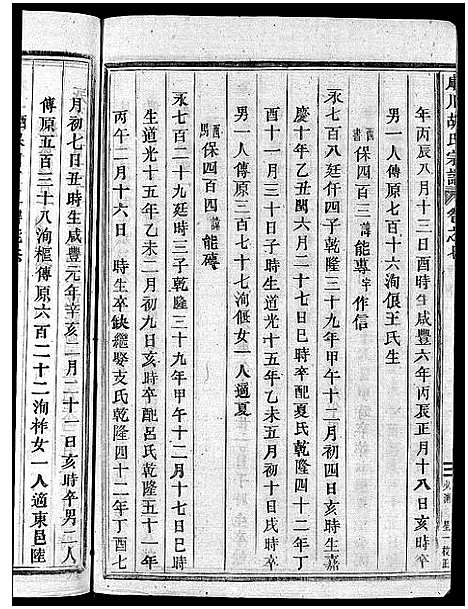 川胡氏宗譜
年丙辰八月十三日酉時生咸豐六年丙辰正月十八日亥時卒
男一人傳原三百七十七洵偃王氏生
保四百四十三諱能專字作信
永七百十八廷仟四子乾隆三十九年甲午十二月初四日亥時生嘉
慶十年乙丑閏六月二十七日巳時卒配夏氏乾隆四十二年丁
酉十一月三日子時生道光十五年乙未五月初十日戌時卒
男一人傳原三百七十七洵偃女一人適夏
保四百四十四諱能磚
永七百二十九廷時三子乾隆三十九年甲午十二月十七日巳時
生道光十五年乙未二月初九日亥時卒配呂氏乾隆五十一年
丙午二月十六日時生卒缺繼娶支氏乾隆四十二年丁酉七
月初七日丑時生咸豐元年辛亥二月二十一日亥時卒男二人
傳原五百三十八洵樞傳原六百二十二洵柞女一人適東邑陸